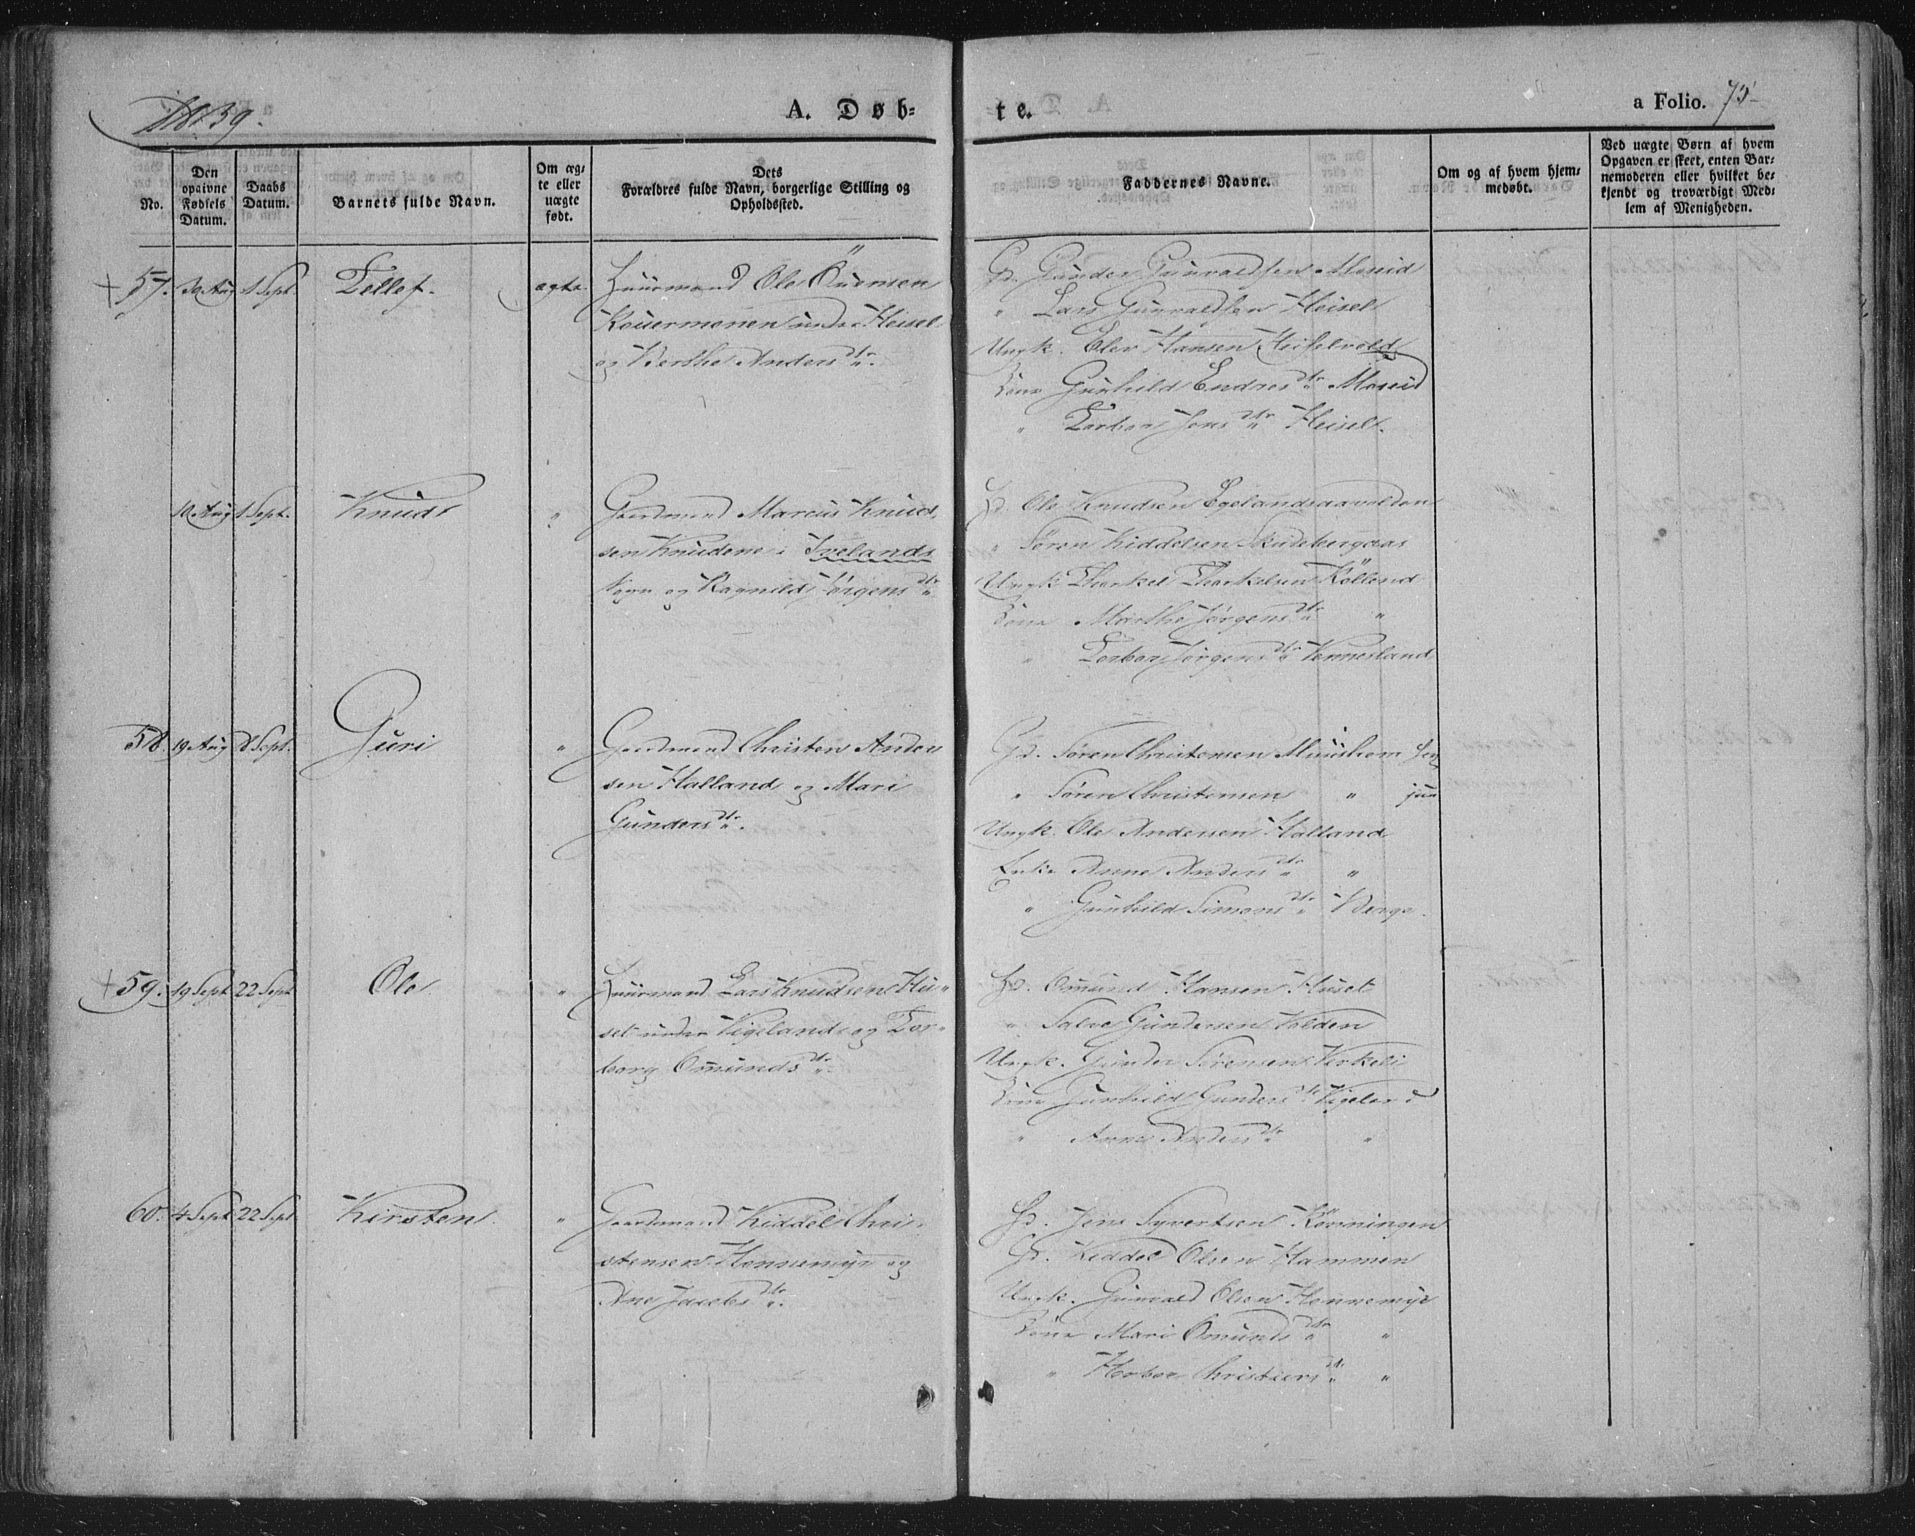 1839.
A. Døb-
te.
a Folio. 75
No.
Den opaivne Fødsels Datum.
Daabs Datum.
Barnets fulde Navn.
Om ægte eller uægte født.
Dets Forældres fulde Navn, borgerlige Stilling og Opholdssted.
Faddernes Navne.
Om og af hvem hjemmedøbt.
Ved uægte Børn af hvem Opgaven er skeet, enten Barnemoderen eller hvilket bekjendt og troværdigt Medlem af Menigheden.
57. Aug 1 Sept. Tellef. ægte.
Huusmand Ole
under Heisel
og Berthe Anders dtr.
Gd. Gunder Gunvaldsen
" Lars Gunvaldsen Heisel
Ungk. Olev Hansen Heiselvold
Kone Gunhild Endres dtr
" Torbor Jons dtr Heisel.
10 Aug 1 Sept. Knud "
Gaardmand Marcus Knud
sen Knudene i Ivelands
Sogn og Ragnild Jørgens dtr
Gd. Ole Knudsen
" Søren Kiddelsen
Ungk Thorkel Thorkelsen
Kone Marthe Jørgens dtr "
" Torbor Jørgens dtr Vennesland
58. 19 Aug 8 Sept. Guri "
Gaardmand Christen Anders
sen Halland og Mari
Gunders dtr.
Gd. Søren Christensen sen
" Søren Christensen " jun
Ungk. Ole Andersen Halland
Enke Anne Anders dtr "
" Gunhild Simons dtr Berge.
59. 19 Sept 22 Sept Ole "
Huusmand Lars Knudsen Hu-
set under Vigeland og Tor-
borg Omunds dtr
Gd. Omund Hansen Huset
" Salve Gundersen Volden
Ungk. Gunder Sørensen Virkeli
Kone Gunhild Gunders dtr Vigeland
" Anne Anders dtr "
60. 4 Sept 22 Sept Kirsten. "
Gaardmand Kiddel Chri-
stensen Honnemyr og
Ane Jacobs dtr.
Gd. Jens Syvertsen
Gd. Kiddel Olsen Hammen
Ungk. Gunvald Olsen Honnemyr
Kone Mari Omunds dtr "
" Christens dtr "